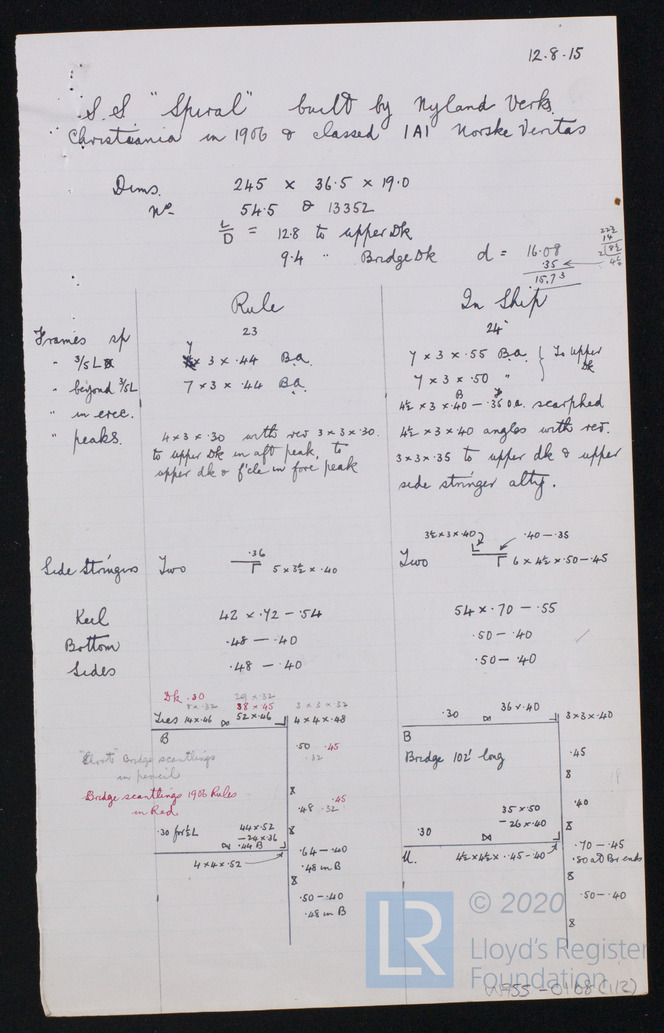 12.8.15
S.S "Spiral" built by Nyland Verks.
Christiania in 1906 & classed 1A1 Norske Veritas
Dims. 245 x 36.5 x 19.0
No. 54.5 & 13352
L/D = 12.8 to upper Dk
9.4 " Bridge Dk d = 16.08
.35
15.73
22½
14
2 | 8½
4¼
Rule In Ship
Frames sp 23 24"
" 3/5 L 7 x 3 x .44 B.a. 7 x 3 x .55 B.a. } To upper Dk
" beyond 3/5L 7 x 3 x .44 B.a. 7 x 3 x .50 "
" in erec. 4½ x 3 x .40 - .36 o.a. scarphed
" peaks. 4 x 3 x .30 with rev 3 x 3 x .30 4½ x 3 x 40 angles with rev.
to upper dk in aft peak, to 3 x 3 x .35 to upper dk & upper
upper dk & f'cle in fore peak side stringer altg.
Side Stringers Two .36 5 x 3½ x .40
Two 3½ x 3 x .40 .40 - .35 6 x 4½ x .50 - .45
Keel 42 x .72 - .54 54 x .70 - .55
Bottom .48 - .40 .50 - .40
Sides .48 - .40 .50 - .40
Dk .30 29 x .32
8 x .32 38 x .45 3 x 3 x .32
Ties 14 x .46 52 x .46 4 x 4 x .48
B
.50 .45
.32
"Short" Bridge scantlings
in pencil
Bridge scantlings 1906 Rules
in Red
8
.45
.48 .32
.30 for ½ L 44 x .52
- 24 x .36
.44 B
8
4 x 4 x .52
.64 - .40
.48 in B
8
.50 - .40
.48 in B
.30 36 x .40 3 x 3 x .40
B
Bridge 102' long
.45
8
.40
35 x .50
- 26 x .40
.30
8
U. 4½ x 4½ x .45 - .40
.70 - .45
.80 at Br ends
8
.50 - .40
8
© 2020
LR
Lloyd's Register
Foundation